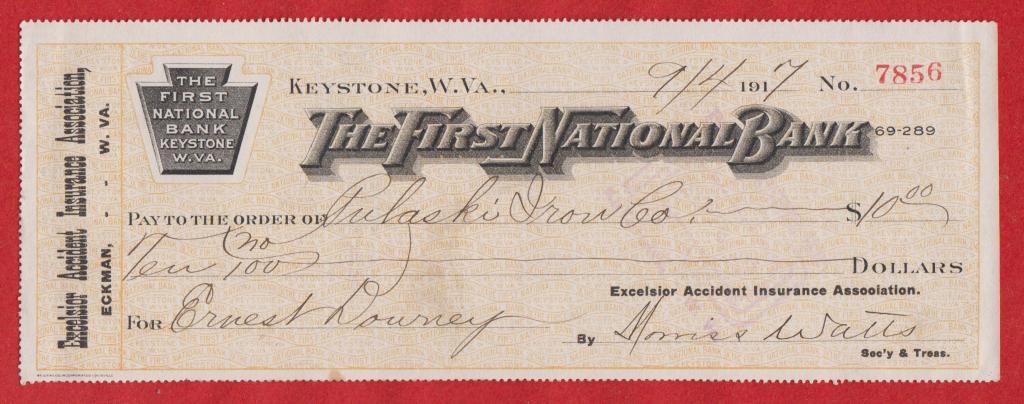 Excelsior Accident Insurance Association,
ECKMAN, - - W. VA.
THE
FIRST
NATIONAL
BANK
KEYSTONE
W.VA.
KEYSTONE, W.VA., 9/4 1917 No. 7856
THE FIRST NATIONAL BANK 69-289
PAY TO THE ORDER OF Pulaski Iron Co. $10.00
Ten no/100 DOLLARS
Excelsior Accident Insurance Association.
FOR Ernest Downey
By Morriss Watts
Sec'y & Treas.